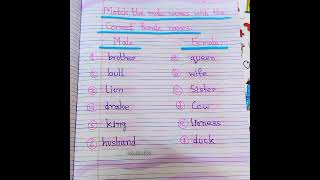 Match the male names with the
Correct female names.
Male Female
1 brother a queen
2 bull b wife
3 Lion c Sister
4 drake d Cow
5 king e lioness
6 husband f duck